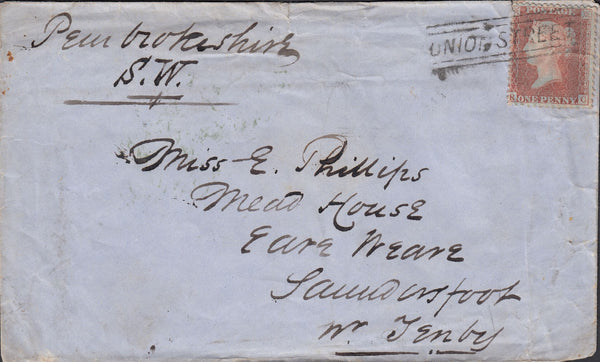 Pembrokeshire
S.W.
UNION STREET
ONE PENNY
Miss E. Phillips
Mead House
Eare Weare
Saundersfoot
Nr. Tenby